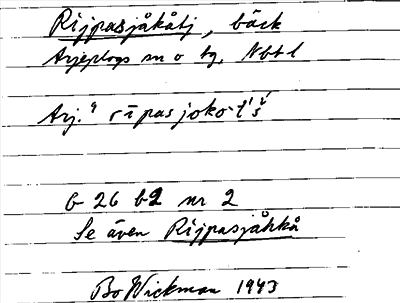 Rijpasjåkåtj, bäck
Arjeplogs sn o tg. Nbtl
Arj. rīpasjoko·t'š́
G 26 b2 nr 2
Se även Rijpasjåhkå
Bo Wickman 1943